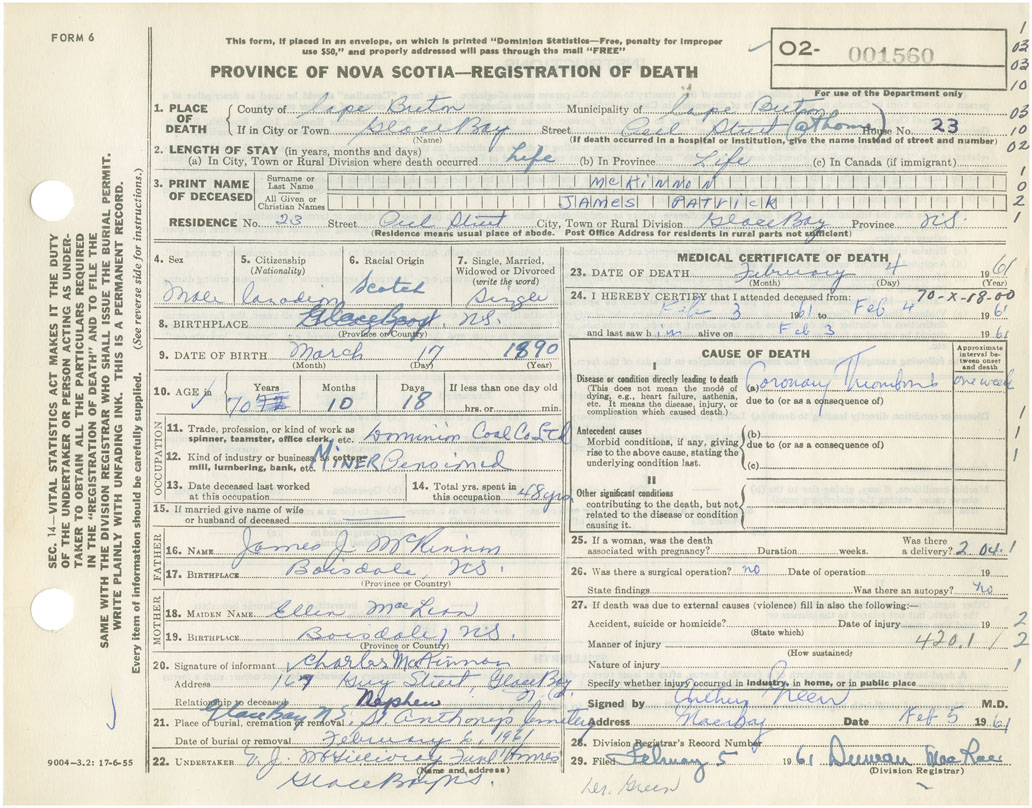 FORM 6
This form, if placed in an envelope, on which is printed "Dominion Statistics—Free, penalty for improper
use $50," and properly addressed will pass through the mail "FREE"
PROVINCE OF NOVA SCOTIA—REGISTRATION OF DEATH
02- 001560
For use of the Department only
1. PLACE OF DEATH County of Cape Breton Municipality of Cape Breton
If in City or Town Glace Bay Street Cecil Street (at home) House No. 23
(Name) (If death occurred in a hospital or institution, give the name instead of street and number)
2. LENGTH OF STAY (in years, months and days)
(a) In City, Town or Rural Division where death occurred Life (b) In Province Life (c) In Canada (if immigrant)
3. PRINT NAME OF DECEASED Surname or Last Name McKINNON
All Given or Christian Names JAMES PATRICK
RESIDENCE No. 23 Street Cecil Street City, Town or Rural Division Glace Bay Province N.S.
(Residence means usual place of abode. Post Office Address for residents in rural parts not sufficient)
4. Sex Male
5. Citizenship (Nationality) Canadian
6. Racial Origin Scotch
7. Single, Married, Widowed or Divorced (write the word) Single
8. BIRTHPLACE Glace Bay, N.S.
(Province or Country)
9. DATE OF BIRTH March 17 1890
(Month) (Day) (Year)
10. AGE in Years Months Days If less than one day old
70 10 18 hrs. or min.
OCCUPATION
11. Trade, profession, or kind of work as spinner, teamster, office clerk, etc. Dominion Coal Co Ltd
12. Kind of industry or business, as cotton mill, lumbering, bank, etc. MINER Pensioned
13. Date deceased last worked at this occupation
14. Total yrs. spent in this occupation 48 yrs
15. If married give name of wife or husband of deceased
FATHER
16. NAME James J. McKinnon
17. BIRTHPLACE Boisdale, N.S.
(Province or Country)
MOTHER
18. MAIDEN NAME Ellen MacLean
19. BIRTHPLACE Boisdale, N.S.
(Province or Country)
20. Signature of informant Charles McKinnon
Address 167 Guy Street, Glace Bay N.S.
Relationship to deceased Nephew
Glace Bay N.S.
21. Place of burial, cremation or removal St Anthony's Cemetery
Date of burial or removal February 6, 1961
22. UNDERTAKER Funl Homes
(Name and address)
Glace Bay N.S.
MEDICAL CERTIFICATE OF DEATH
23. DATE OF DEATH February 4 1961
(Month) (Day) (Year)
24. I HEREBY CERTIFY that I attended deceased from: 70-X-18-00
Feb 3 1961 to Feb 4 1961
and last saw him alive on Feb 3 1961
CAUSE OF DEATH
Approximate interval between onset and death
I
Disease or condition directly leading to death (This does not mean the mode of dying, e.g., heart failure, asthenia, etc. It means the disease, injury, or complication which caused death.)
(a) Coronary Thrombosis one week
due to (or as a consequence of)
Antecedent causes
Morbid conditions, if any, giving rise to the above cause, stating the underlying condition last.
(b)
due to (or as a consequence of)
(c)
II
Other significant conditions contributing to the death, but not related to the disease or condition causing it.
25. If a woman, was the death associated with pregnancy? Duration weeks. Was there a delivery? 2 04.1
26. Was there a surgical operation? no Date of operation 19
State findings Was there an autopsy? no
27. If death was due to external causes (violence) fill in also the following:—
Accident, suicide or homicide? Date of injury 19
(State which)
Manner of injury 420.1
(How sustained)
Nature of injury
Specify whether injury occurred in industry, in home, or in public place
Signed by Arthur Green M.D.
Address Glace Bay Date Feb 5 1961
28. Division Registrar's Record Number
29. Filed February 5 1961 Duncan MacRae
(Division Registrar)
Dr. Green
9004—3.2: 17-6-55
SEC. 14—VITAL STATISTICS ACT MAKES IT THE DUTY
OF THE UNDERTAKER OR PERSON ACTING AS UNDER-
TAKER TO OBTAIN ALL THE PARTICULARS REQUIRED
IN THE "REGISTRATION OF DEATH" AND TO FILE THE
SAME WITH THE DIVISION REGISTRAR WHO SHALL ISSUE THE BURIAL PERMIT.
WRITE PLAINLY WITH UNFADING INK. THIS IS A PERMANENT RECORD.
Every item of information should be carefully supplied. (See reverse side for instructions.)
1
03
03
10
03
10
02
1
0
2
1
1
1
1
1
2
2
1